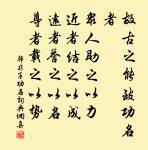 故古之能致功名
者
众人助之以力
近者结之以成
远者誉之以名
尊者载之以势
韩非子功名词典网集